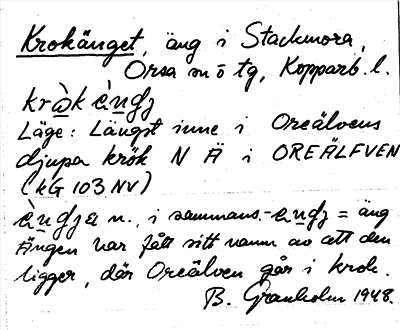 Krokänget, äng i Stackmora,
Orsa sn ö tg, Kopparb. l.
Läge: Längst inne i Oreälvens
djupa krök N Ä i OREÄLFVEN
(KG 103 NV)
n., i sammans. = äng
Ängen har fått sitt namn av att den
ligger, där Oreälven går i krok.
B. Granholm 1948.